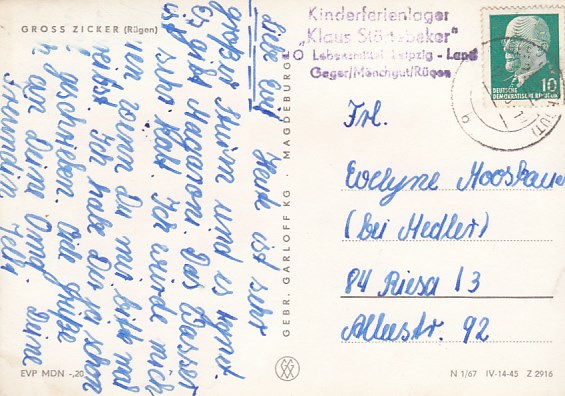 GROSS ZICKER (Rügen)
Kinderferienlager
"Klaus Störtebeker"
Lebensmittel Leipzig - Land
Gager/Mönchgut/Rügen
10
DEUTSCHE
DEMOKRATISCHE REPUBLIK
Frl.
Evelyne
(bei Medler)
84 Riesa 13
92
Heut ist sehr
großer Sturm und es
Es gibt Das Wasser
ist sehr kalt. Ich würde mich
wenn Du mir bitte mal
Ich habe Dir ja schon
geschrieben. Viele Grüße
Deine
Freundin
GEBR. GARLOFF KG · MAGDEBURG
EVP MDN -,20
N 1/67 IV-14-45 Z 2916